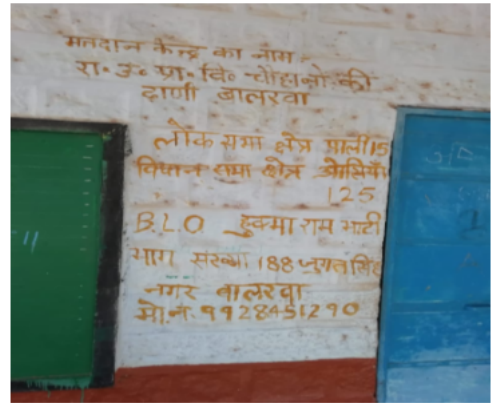 मतदान केन्द्र का नाम -
रा॰ उ॰ प्रा॰ वि॰ चौहानो की
ढाणी बालरवा
लोक सभा क्षेत्र पाली 15
विधान सभा क्षेत्र ओसियाँ
125
B.L.O हुक्मा राम भाटी
भाग संख्या 188 जुगत सिंह
नगर बालरवा
मो.न. 9928451290